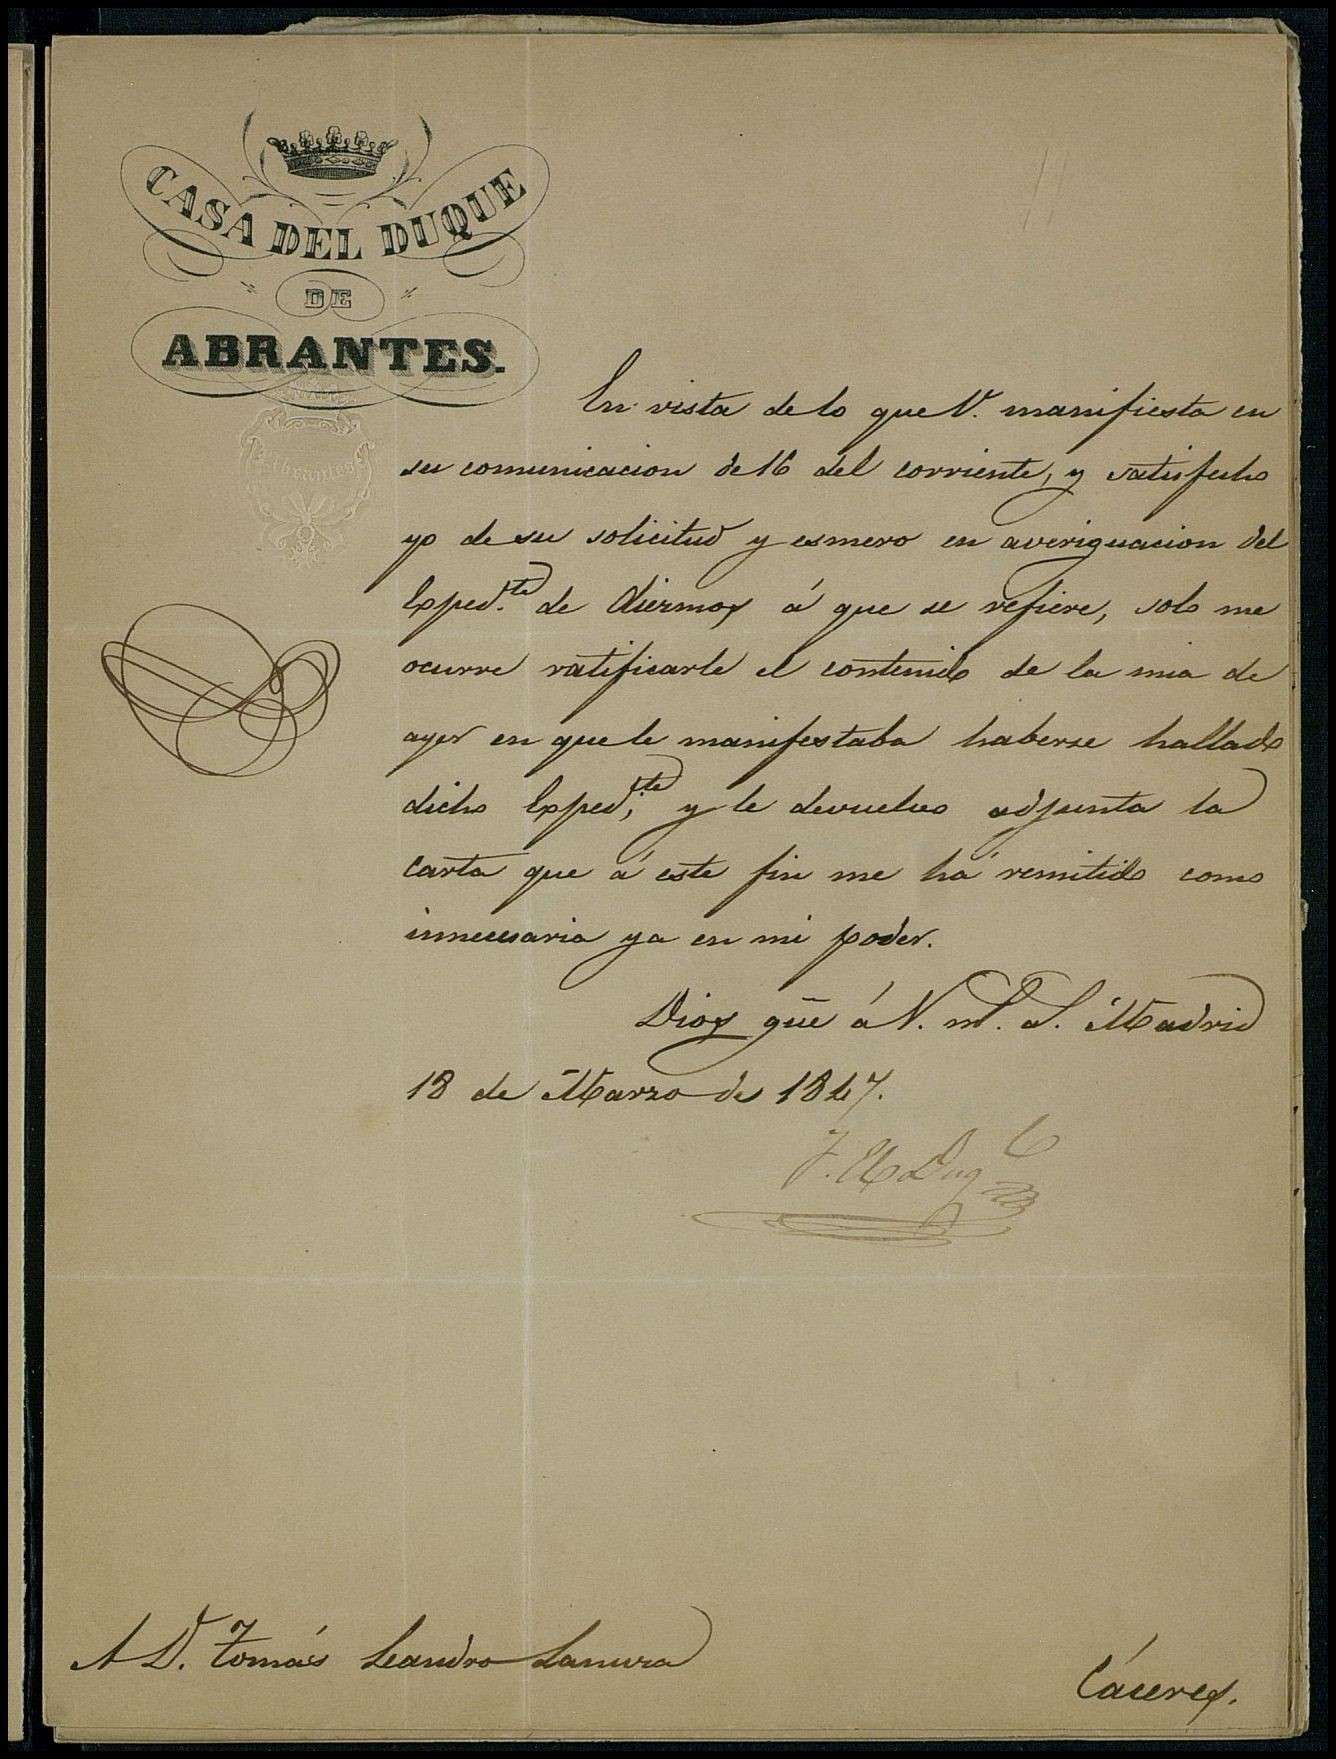 CASA DEL DUQUE
DE
ABRANTES.
Abrantes
En vista de lo que V. manifiesta en
su comunicacion de 16 del corriente, y satisfecho
yo de su solicitud y esmero en averiguacion del
Exped.te de diezmos á que se refiere, solo me
ocurre ratificarle el contenido de la mia de
ayer en que le manifestaba haberse hallado
dicho Exped.te, y le devuelvo adjunta la
carta que á este fin me há remitido como
innecesaria ya en mi poder.
Dios güe á V. m.s a.s Madrid
18 de Marzo de 1847.
El Duq
A D. Tomás Leandro
Cáceres.